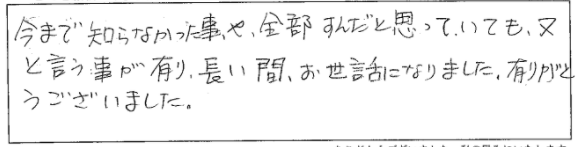 今まで知らなかった事や、全部すんだと思っていても、又
と言う事が有り、長い間、お世話になりました。有りがと
うございました。